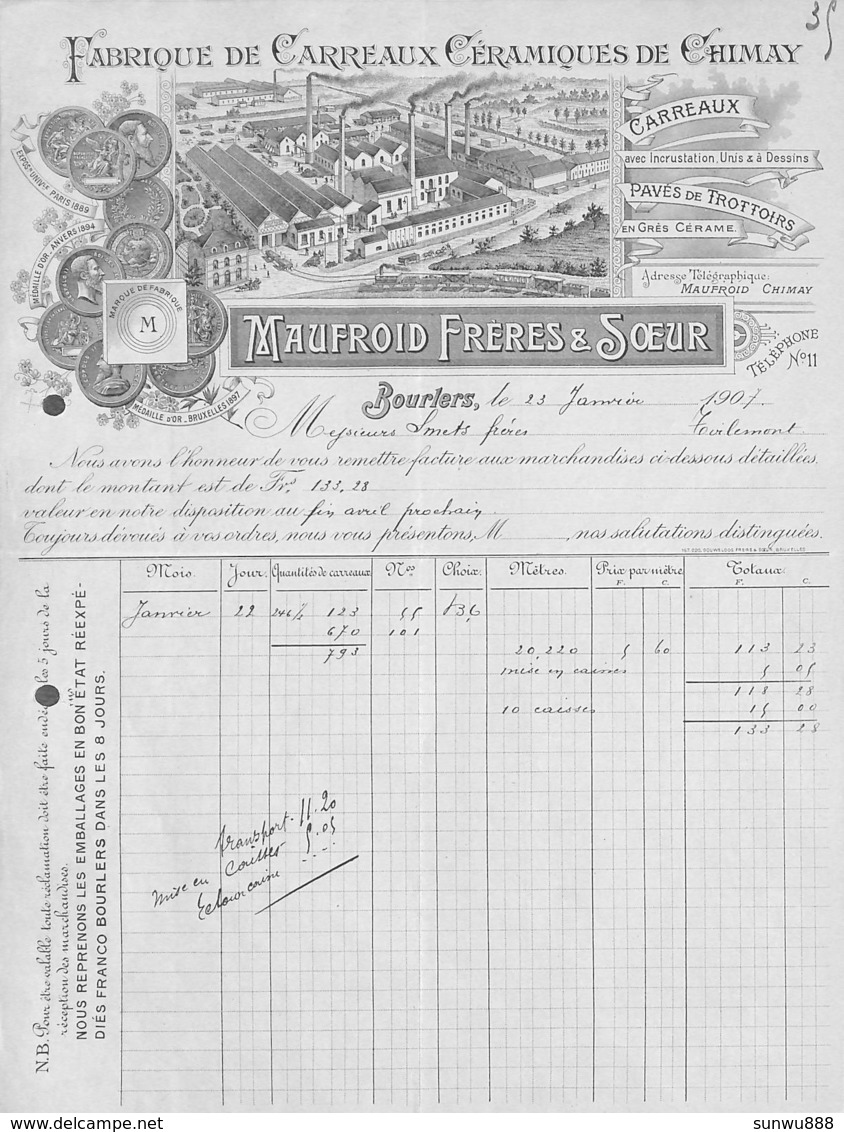 35
FABRIQUE DE CARREAUX CÉRAMIQUES DE CHIMAY
CARREAUX
avec Incrustation, Unis & à Dessins
PAVÉS DE TROTTOIRS
EN GRÈS CÉRAME.
Adresse Télégraphique:
MAUFROID CHIMAY
EXPOS. UNIVelle PARIS 1889
MÉDAILLE D'OR ANVERS 1894
MARQUE DE FABRIQUE
M
MÉDAILLE D'OR_BRUXELLES 1897
MAUFROID FRÈRES & SŒUR
TÉLÉPHONE
No 11
Bourlers, le 23 Janvier 1907.
Messieurs Smets frères Tirlemont
Nous avons l'honneur de vous remettre facture aux marchandises ci-dessous détaillées
dont le montant est de Frs 133,28
valeur en notre disposition au fin avril prochain
Toujours dévoués à vos ordres, nous vous présentons, M , nos salutations distinguées.
Mois. Jour. Quantités de carreaux. Nos Choix. Mètres. Prix par mètre Totaux.
F. C. F. C.
Janvier 22 246/2 123 55
670 101
793 20,220 5 60 113 23
mise en caisses 5 05
118 28
10 caisses 15 00
133 28
transport - 11.20
mise en caisses 5.05
N.B. Pour être valable toute réclamation doit être faite endéans les 5 jours de la
réception des marchandises.
NOUS REPRENONS LES EMBALLAGES EN BON ÉTAT RÉEXPÉ-
DIÉS FRANCO BOURLERS DANS LES 8 JOURS.
sunwu888